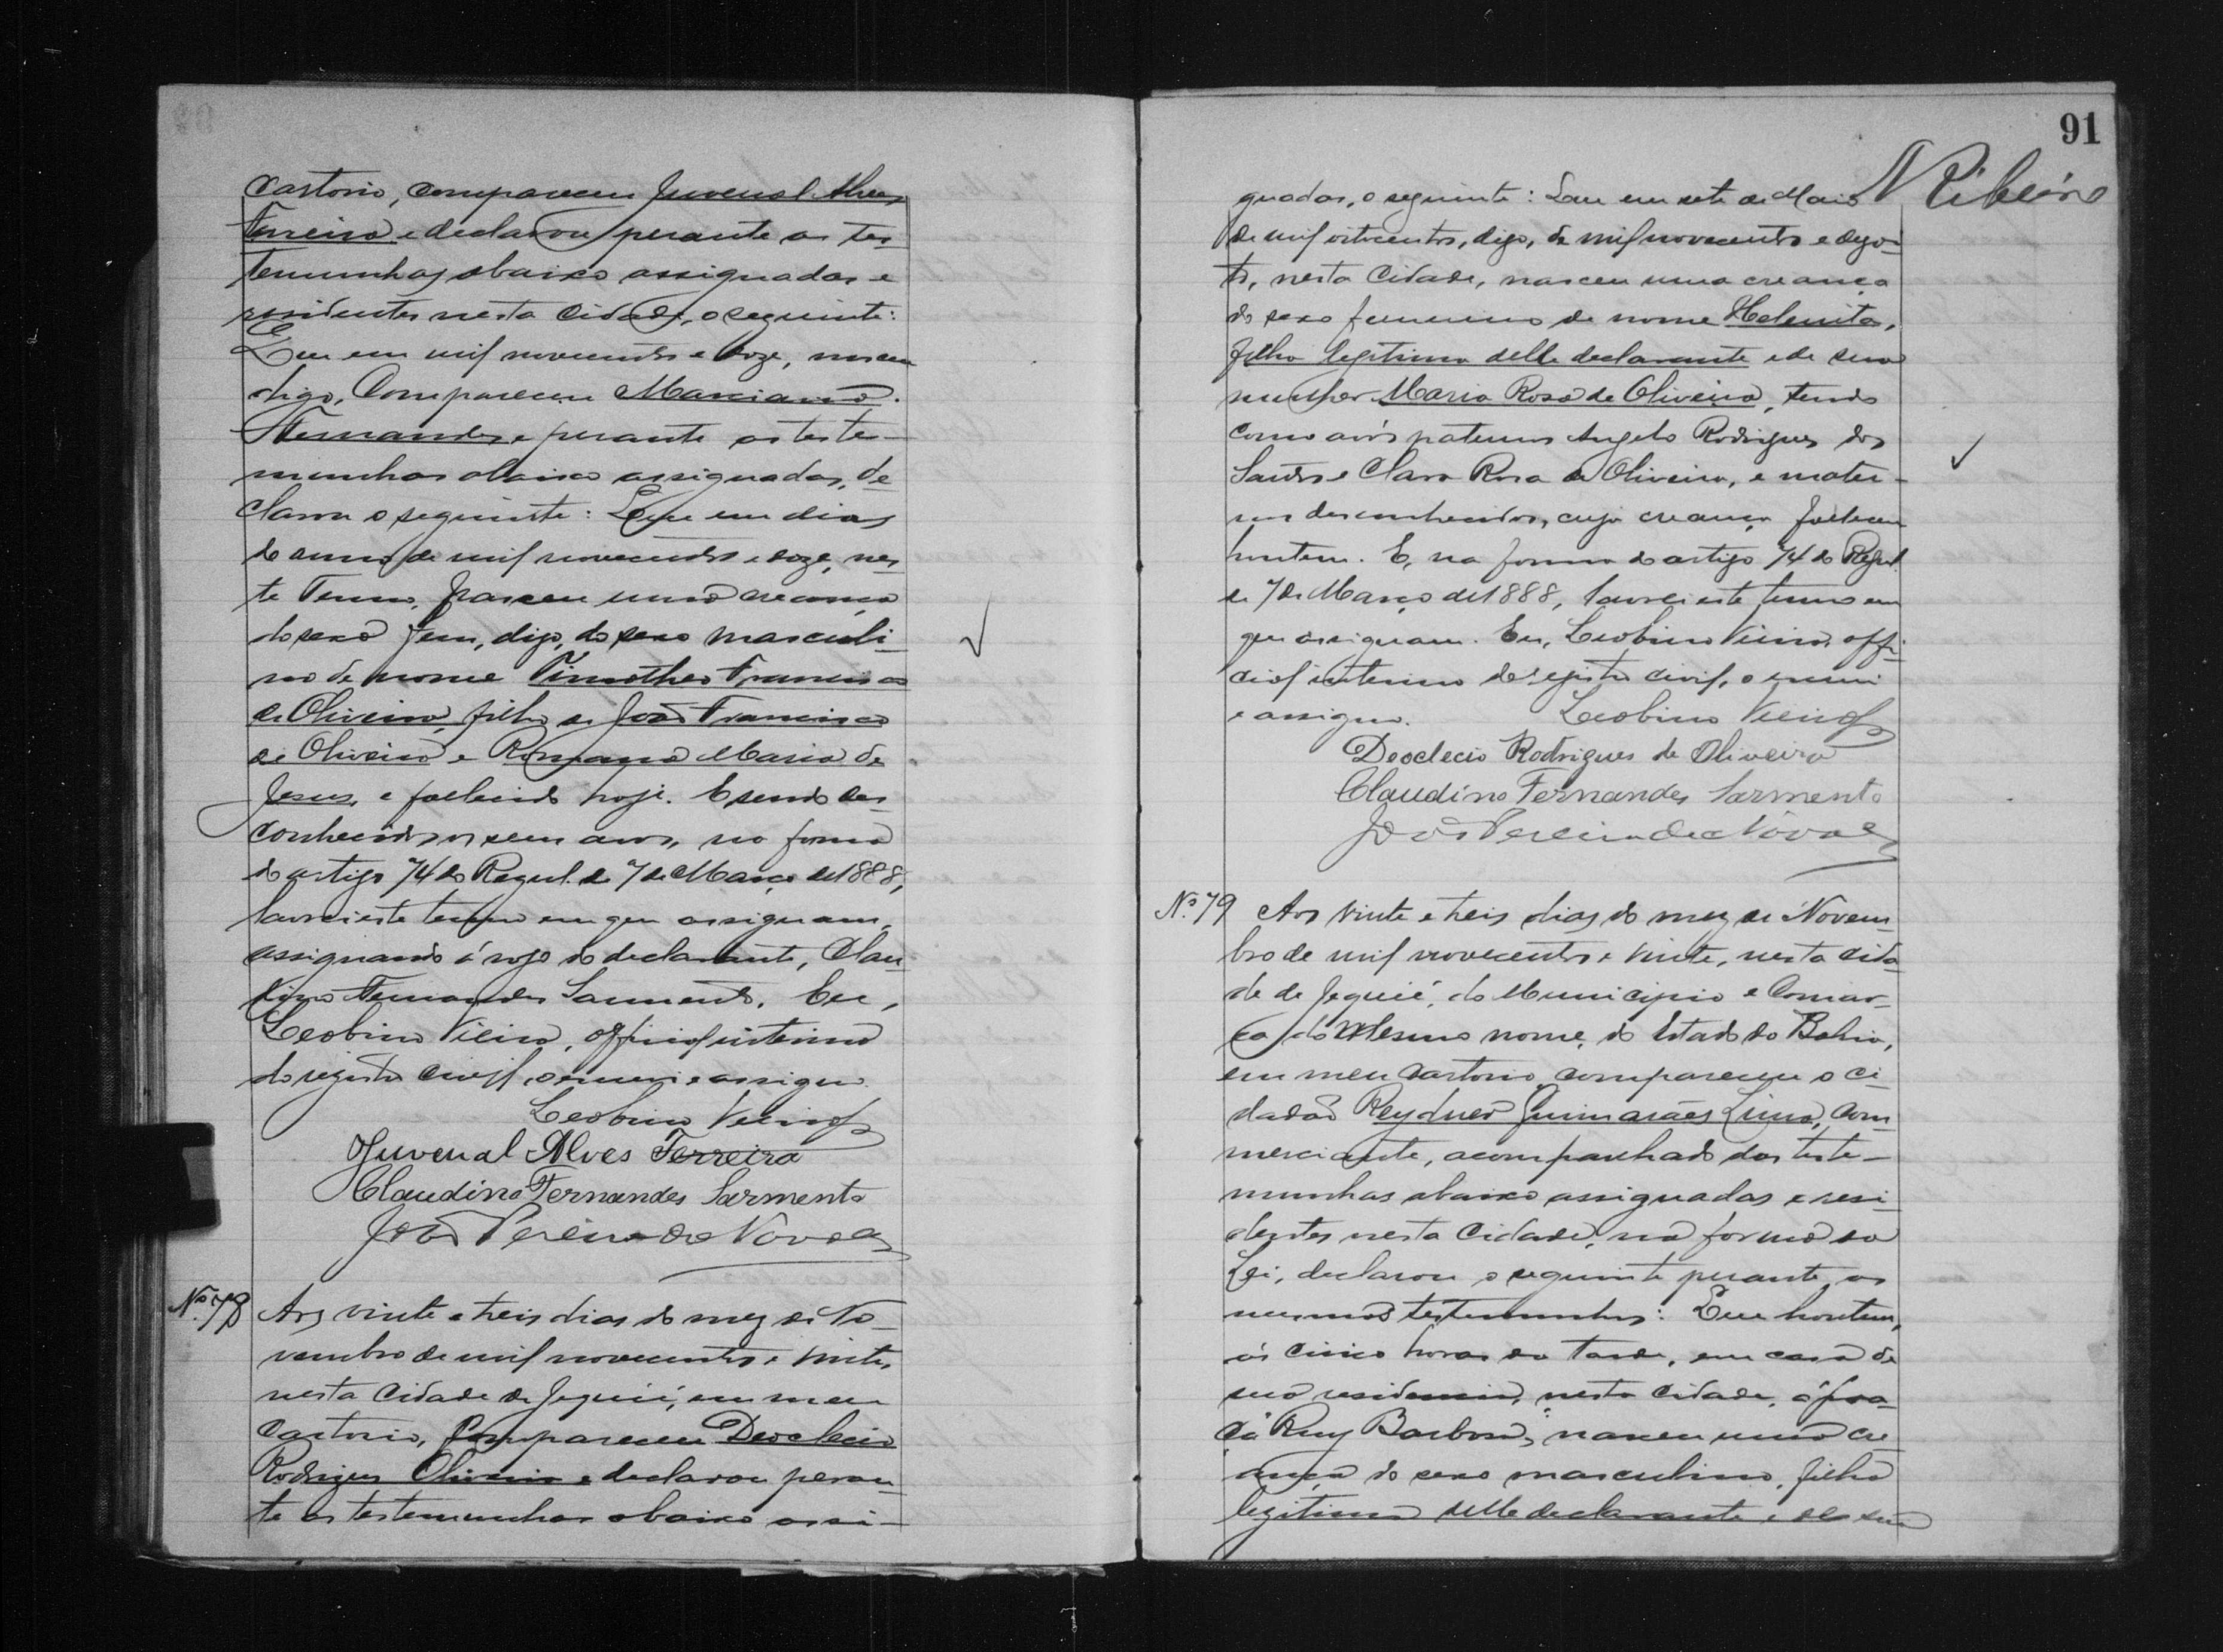 Cartorio, compareceu Juvenal Alves
Ferreira e declarou perante as tes-
temunhas abaixo assignadas e
residentes nesta Cidade, o seguinte:
Que em mil novecentos e doze, nasceu
digo, Compareceu Marciano
Fernandes e perante as teste-
munhas abaixo assignadas, de-
clarou o seguinte: Que em dias
do anno de mil novecentos e doze, nes-
te Termo, nasceu uma creança
do sexo fem, digo, do sexo masculi-
no de nome Timotheo Francisco
de Oliveira, filho de João Francisco
de Oliveira e Romana Maria de
Jesus, e fallecido hoje. E sendo des-
conhecidos os seus avós, na forma
do artigo 74 do Regul. de 7 de Março de 1888,
lavrei este termo em que assignam,
assignando á rogo do declarante, Clau-
dino Fernandes Sarmento. Eu,
Leobino Vieira, official interino
do registro civil, o escrevi e assigno.
Leobino Vieira
Juvenal Alves Ferreira
Claudino Fernandes Sarmento
João Pereira de Novaes
Nº 78 Aos vinte e treis dias do mez de No-
vembro de mil novecentos e vinte,
nesta Cidade de Jequié, em meu
Cartorio, Compareceu Deoclecio
Rodrigues Oliveira e declarou peran-
te as testemunhas abaixo assi-
91
N Ribeiro
gnadas, o seguinte: Que em sete de Maio
de mil oitocentos, digo, de mil novecentos e dezoi-
to, nesta Cidade, nasceu uma creança
do sexo feminino de nome Helenita,
filha legitima delle declarante e de sua
mulher Maria Rosa de Oliveira, tendo
como avós paternos Angelo Rodrigues dos
Santos e Clara Rosa de Oliveira, e mater-
nos desconhecidos, cuja creança falleceu
hontem. E, na forma do artigo 74 do Regul.
de 7 de Março de 1888, lavrei este termo em
que assignam. Eu, Leobino Vieira, offi-
cial interino do registro civil, o escrevi
e assigno. Leobino Vieira
Deoclecio Rodrigues de Oliveira
Claudino Fernandes Sarmento
João Pereira de Novaes
Nº 79 Aos vinte e treis dias do mez de Novem-
bro de mil novecentos e vinte, nesta cida-
de de Jequié, do Municipio e Comar-
ca do mesmo nome, do Estado da Bahia,
em meu Cartorio compareceu o ci-
dadão Reydner Guimarães Lima, com-
merciante, acompanhado das teste-
munhas abaixo assignadas e resi-
dentes nesta Cidade, na forma da
Lei, declarou o seguinte perante as
mesmas testemunhas: Que hontem,
ás cinco horas da tarde, em casa de
sua residencia, nesta Cidade, á pra-
ça "Ruy Barbosa", nasceu uma cre-
ança do sexo masculino, filho
legitimo delle declarante e de sua